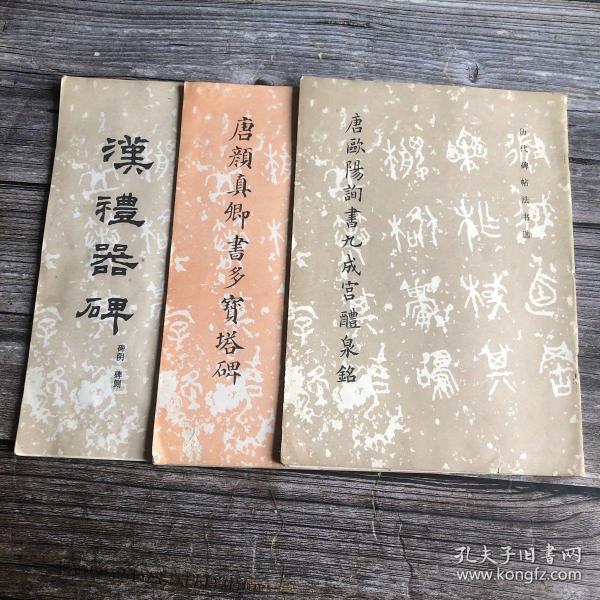 漢禮器碑
碑阴 碑侧
唐顏真卿書多寶塔碑
唐歐陽詢書九成宮醴泉銘
历代碑帖法书选
孔夫子旧书网
www.kongfz.com